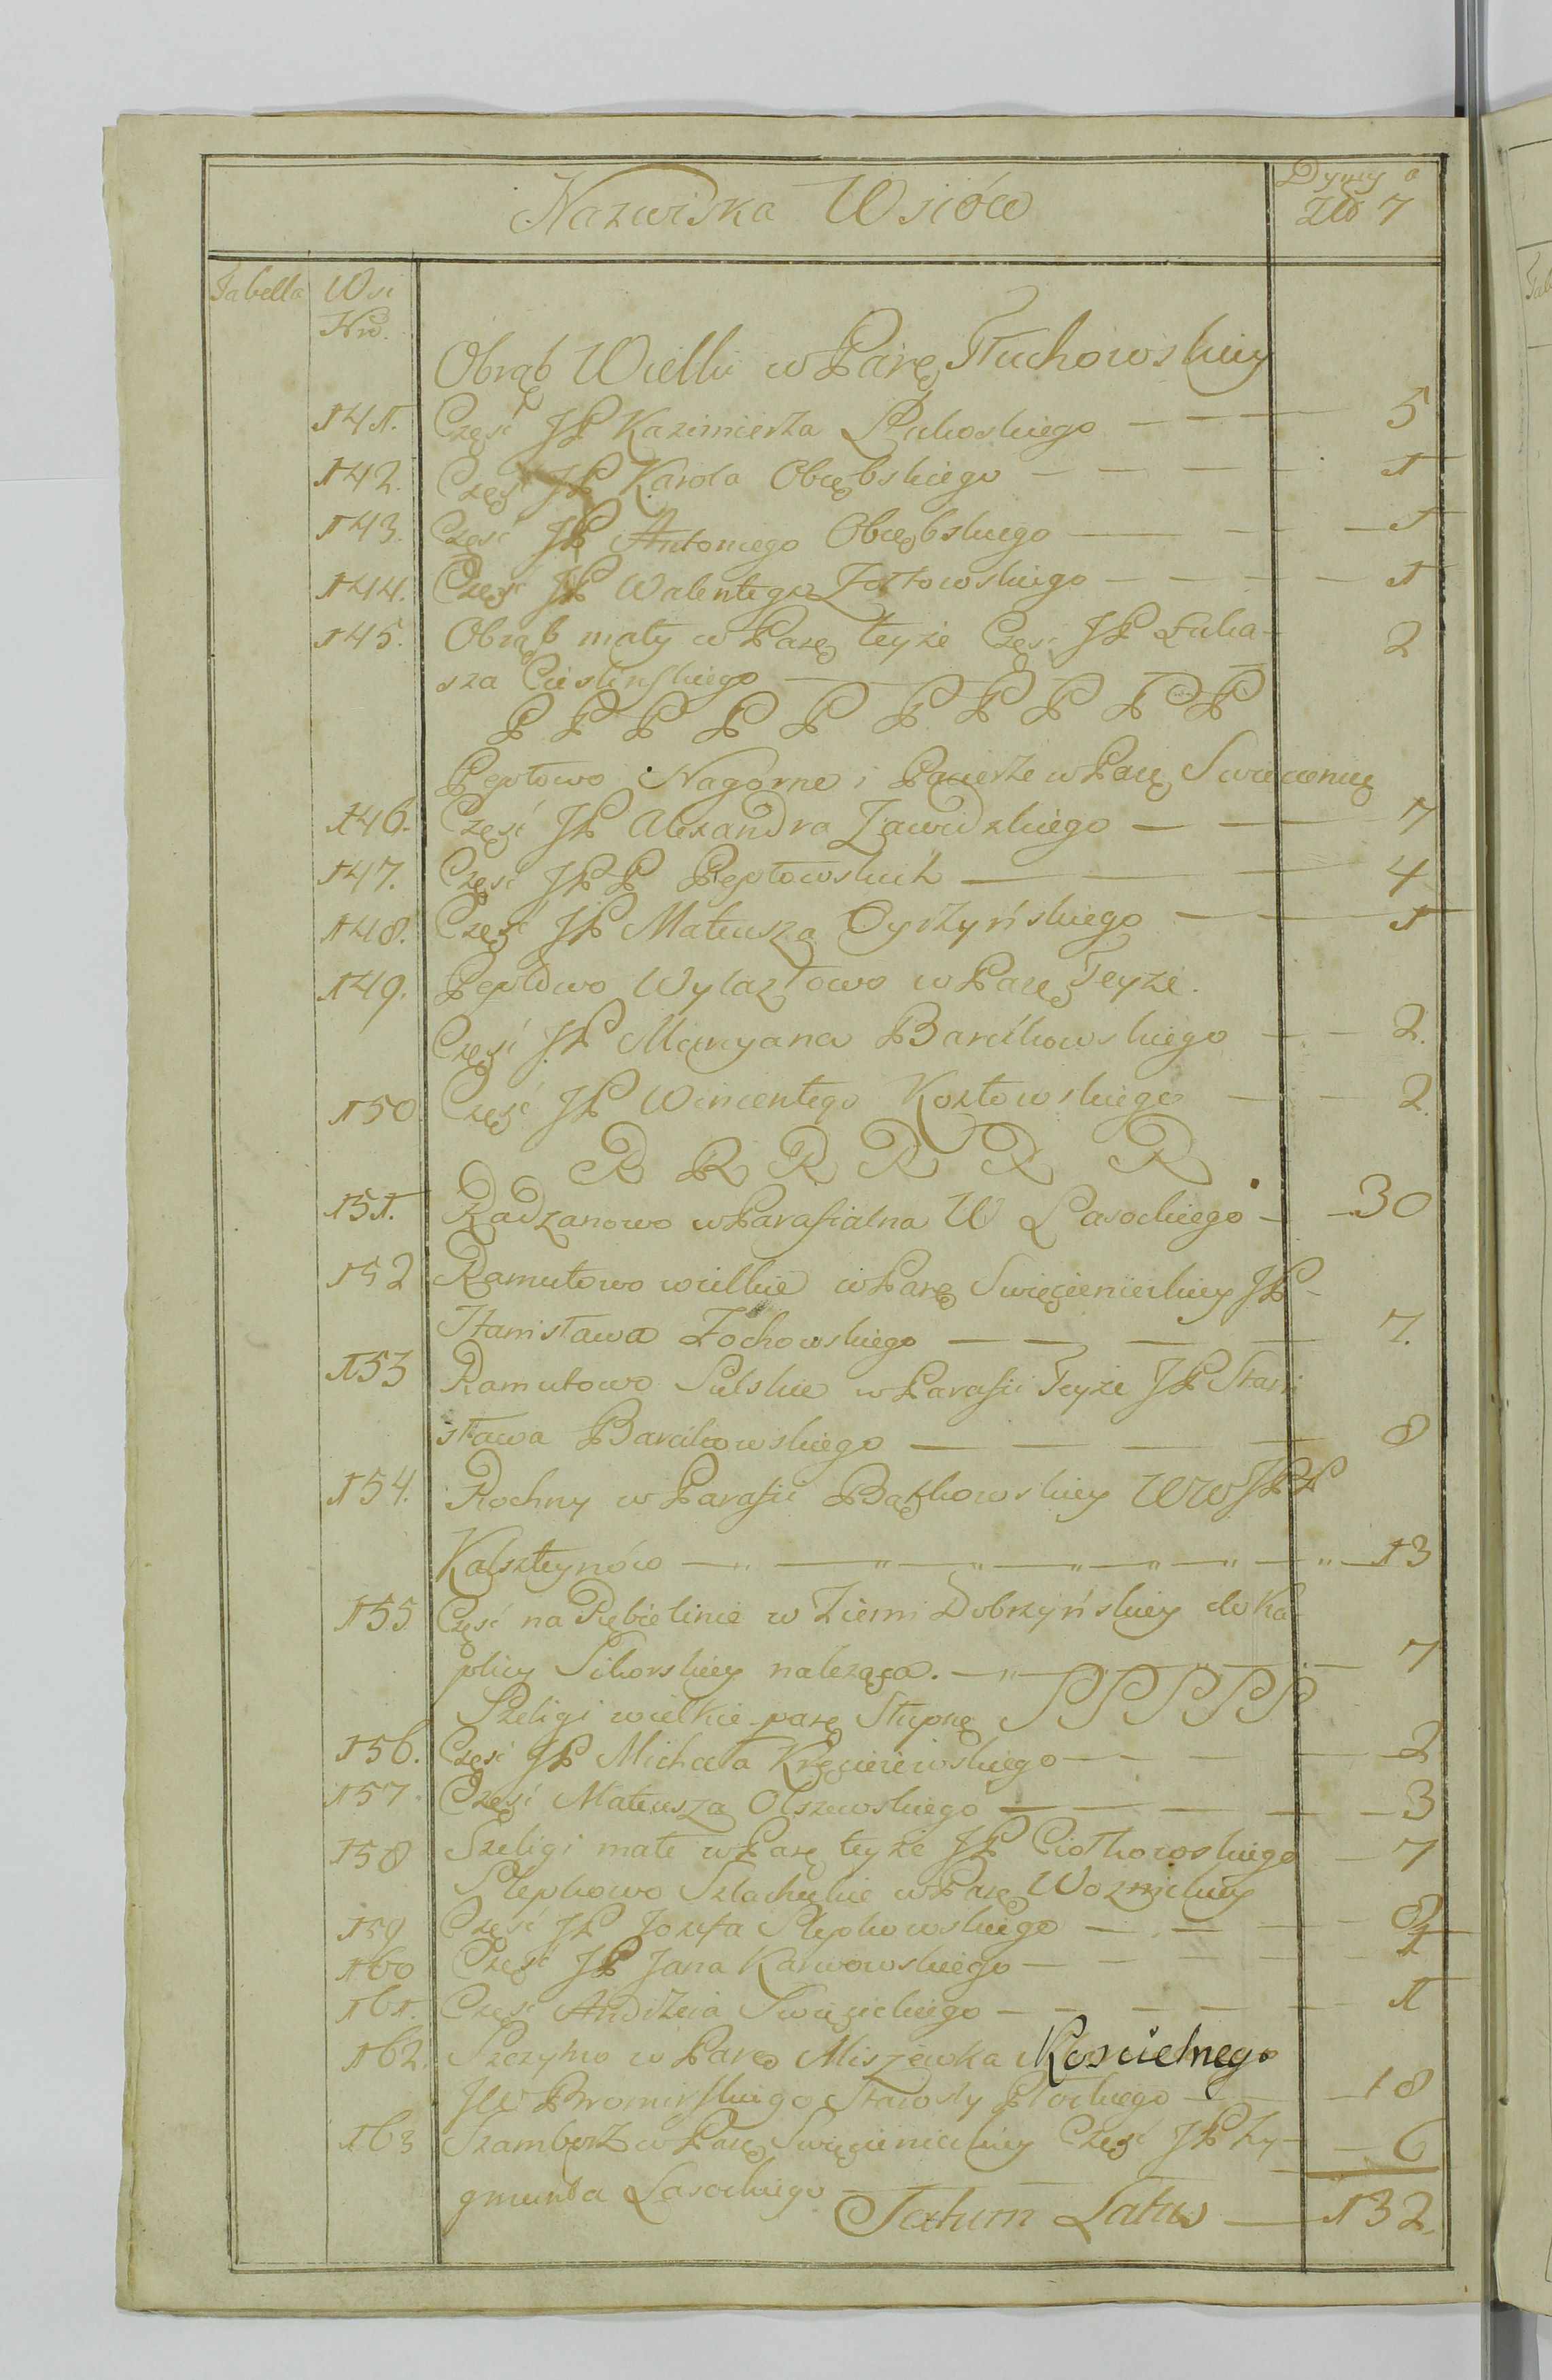 Nazwiska Wsiów
Dymy a
Zło 7
Tabella
Wsi
Nro.
Obrąb Wielki w Parę Tłuchowskiey
141. Część JP Kazimierza Łukoskiego — — — 5
142. Część JP Karola Obrębskiego — — — 1
143. Część JP Antoniego Obrębskiego — — — 1
144. Część JP Walentego Zołtowskiego — — — 1
145. Obrąb mały w Parę teyże Część JP Łuka- 2
sza Cieslinskiego —
P P P P P P P P P P
Pepłowo Nagórne i Pacierze w Parę Swięcieniec
146. Część JP Alexandra Zawidzkiego — — 7
147. Część JPP Pepłowskich — — — 4
148. Część JP Mateusza Cyrzyńskiego — — 1
149. Pepłowo Wylazłowo w Parę Teyże.
Część JP Maryana Barcikowskiego — — 2.
150 Część JP Wincentego Kozłowskiego — — 2.
R R R R R R
151. Radzanowo w Parafialna W Lasockiego — 30
152 Ramutowo wielkie w Parę Swięcienieckiey JP-
Stanisława Żochowskiego — — — 7.
153 Ramutowo Sulskie w Parafii Teyże JP Stani
sława Barcikowskiego — — — 8
154. Rochny w Parafii Bązkowskiey WW JPP
Kalszteynów — — — 13
155 Część na Rębielinie w Ziemi Dobrzyńskiey do Ka
plicy Sikorskiey należąca. — — 7
Szeligi wielkie parę Słupnę S S S S S
156. Część JP Michała Kręcieiewskiego — — — 2
157 Część Mateusza Olszewskiego — — — 3
158 Szeligi małe w Parę teyże JP Ciołkowskiego — 7
Slepkowo Szlacheckie w Parę Woznickiey
159 Część JP Jozefa Slepkowskiego — —
160 Część JP Jana Karwowskiego — — 1
161. Część Andrzeia Swięcickiego — — 1
162. Szczytno w Parę Miszewka Koscielnego
JW Brominskiego Starosty Płockiego — 18
163 Szambork w Parę Swięcienieckiey Część JP Zy- — 6
gmunta Lasockiego —
Totum Latus — 132.